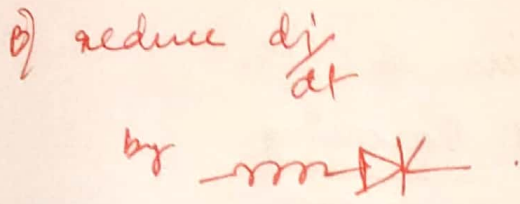 B) reduce di/dt
by